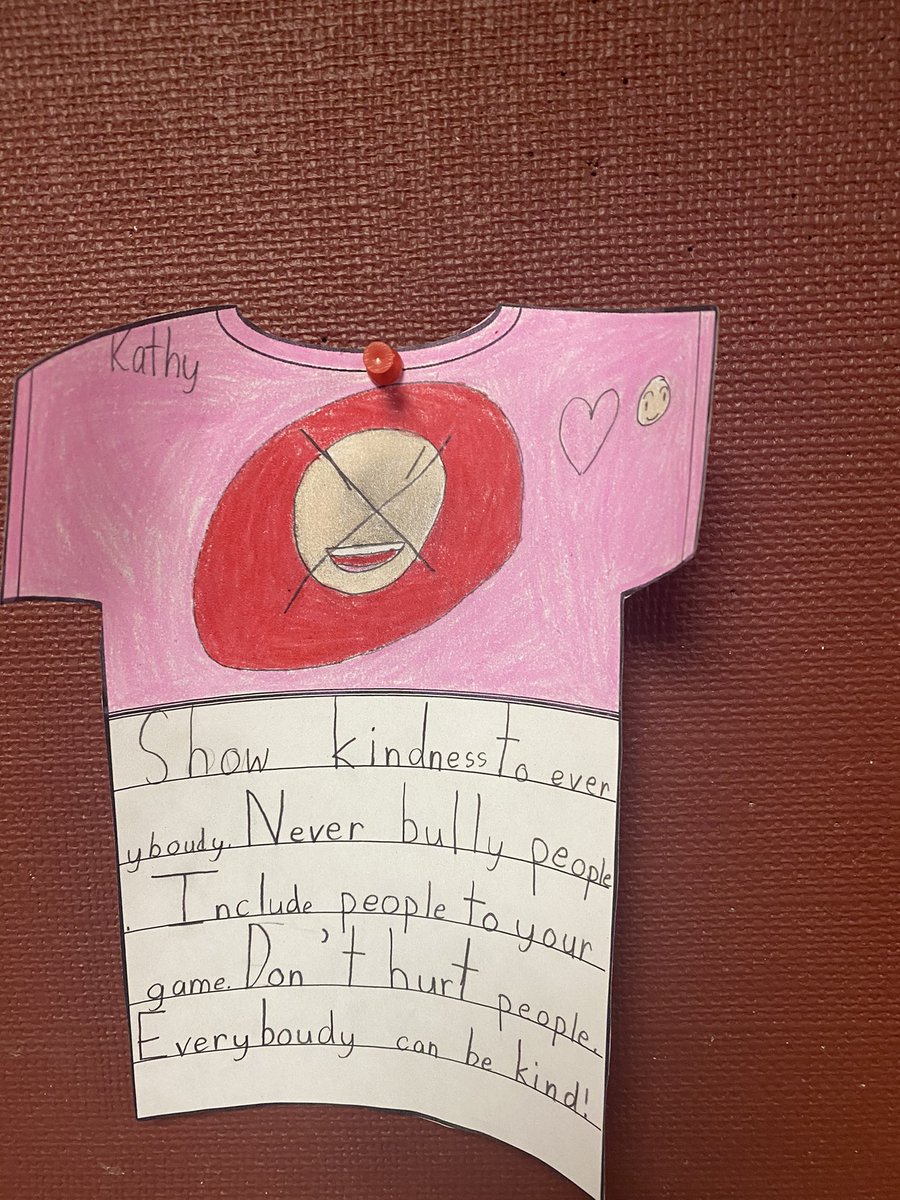 Kathy
Show kindness to ever
yboudy. Never bully people
. Include people to your
game. Don't hurt people.
Everyboudy can be kind!